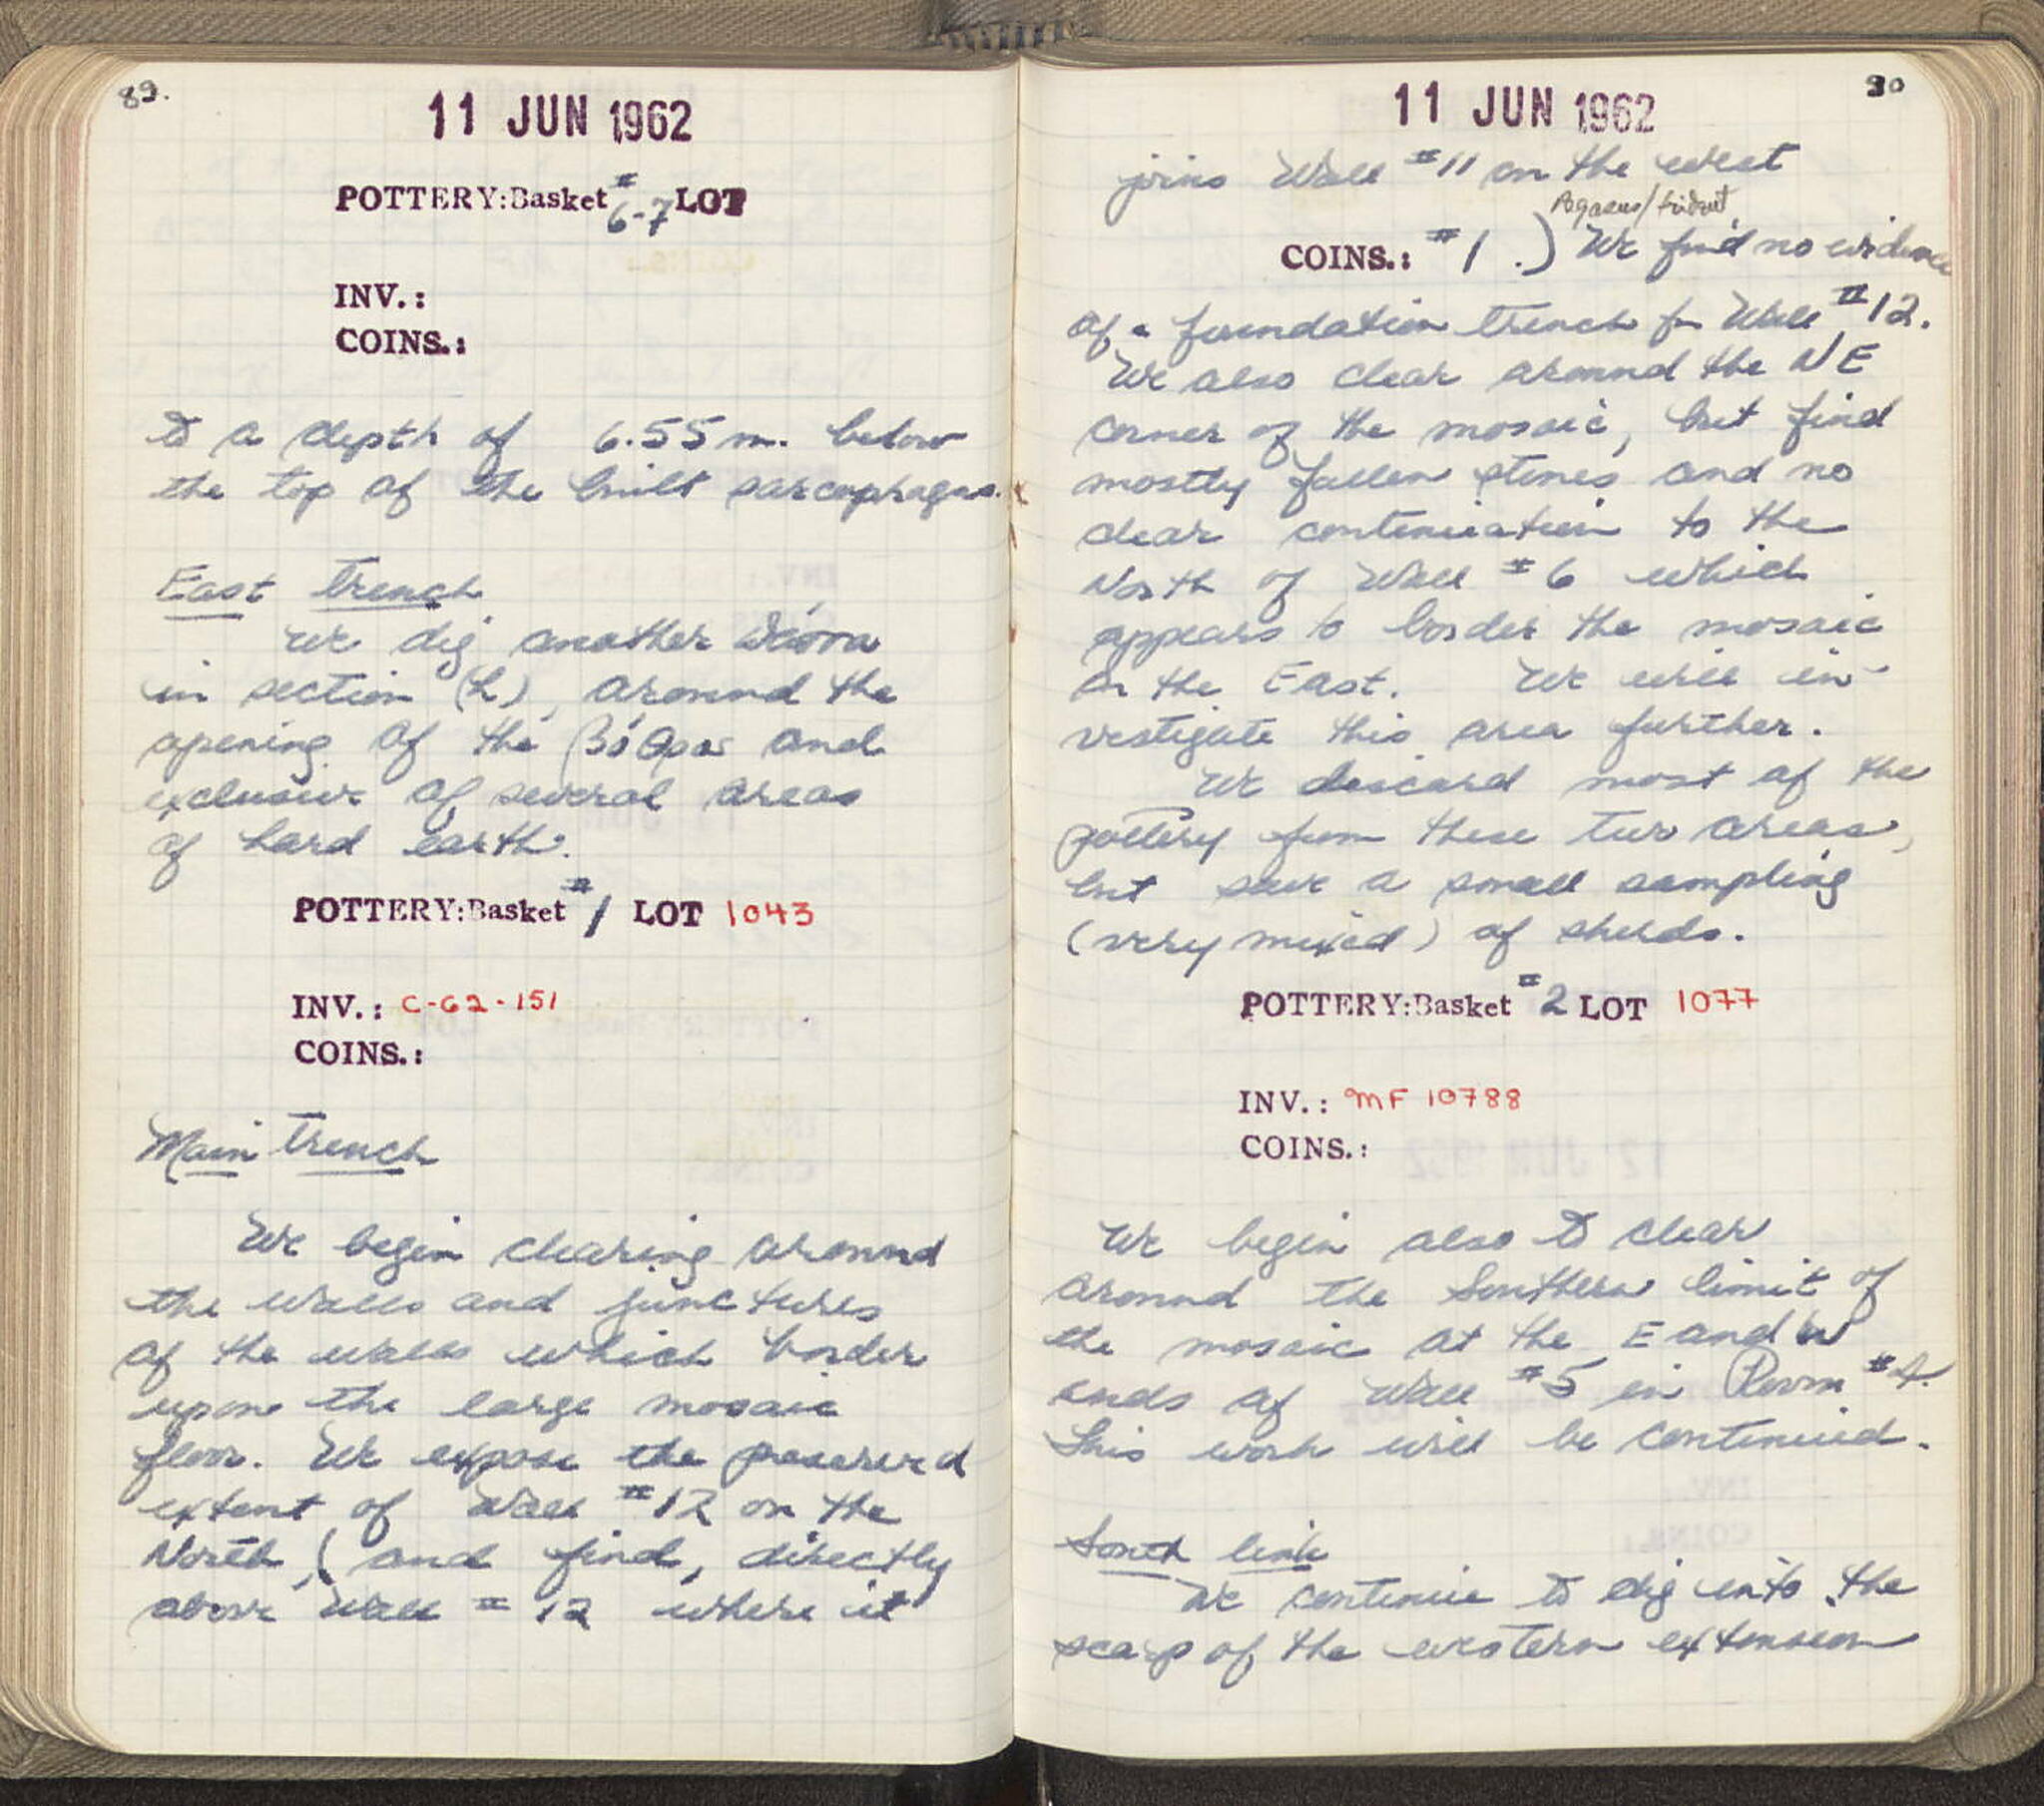 89.
11 JUN 1962
POTTERY:Basket # 6-7 LOT
INV.:
COINS.:
to a depth of 6.55 m. below
the top of the built sarcophagus.
East trench
We dig another
in section (L), around the
opening of the βόθρος and
exclusive of several areas
of hard earth.
POTTERY:Basket #1 LOT 1043
INV.: C-62-151
COINS.:
Main trench
We begin clearing around
the walls and junctures
of the walls which border
upon the large mosaic
floor. We expose the preserved
extent of Wall #12 on the
North, (and find, directly
above Wall #12 where it
90
11 JUN 1962
joins Wall #11 on the west
Pegasus/trident
COINS.: #1 .) We find no evidence
of a foundation trench for Wall #12.
We also clear around the NE
corner of the mosaic, but find
mostly fallen stones and no
clear continuation to the
North of Wall #6 which
appears to border the mosaic
on the East. We will in-
vestigate this area further.
We discard most of the
pottery from these two areas,
but save a small sampling
(very mixed) of sherds.
POTTERY:Basket #2 LOT 1077
INV.: MF 10788
COINS.:
We begin also to clear
around the Southern limit of
the mosaic at the E and W
ends of Wall #5 in Room #4.
This work will be continued.
South link
We continue to dig into the
scarp of the western extension